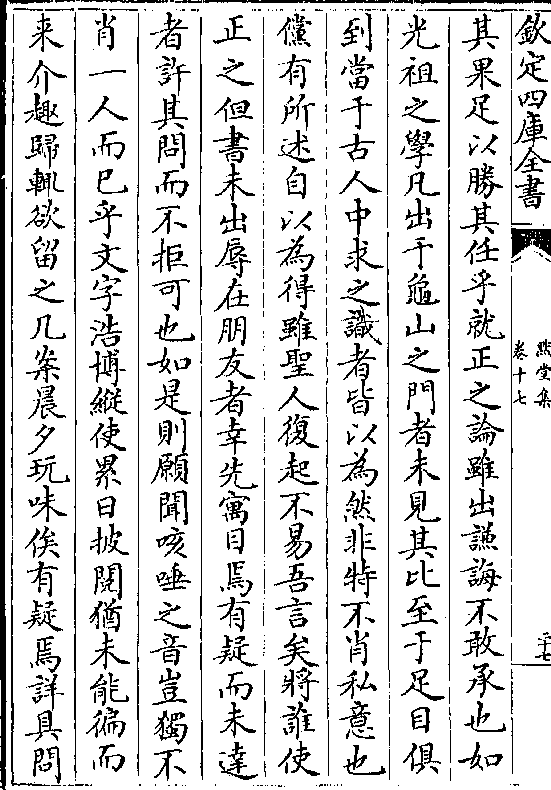 欽定四庫全書
默堂集
卷十七
二十七
其果足以勝其任乎就正之論雖出謙誨不敢承也如
光祖之學凡出于龜山之門者未見其比至于足目俱
到當于古人中求之識者皆以為然非特不肖私意也
儻有所述自以為得雖聖人復起不易吾言矣將誰使
正之但書未出辱在朋友者幸先寓目焉有疑而未達
者許其問而不拒可也如是則願聞咳唾之音豈獨不
肖一人而已乎文字浩博縱使累日披閱猶未能徧而
来介趣歸輒欲留之几案晨夕玩味俟有疑焉詳具問